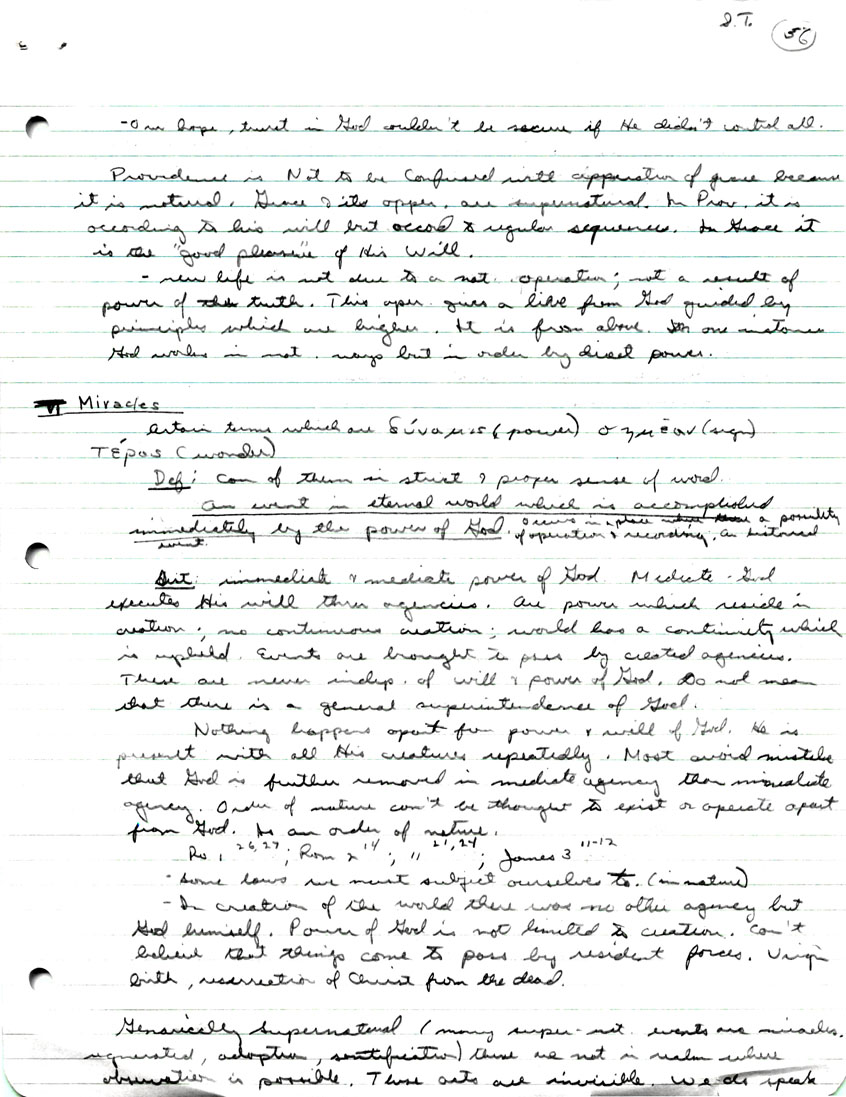 S.T. 36
- Our hope, trust in God couldn't be secure if He didn't control all.
Providence is Not to be Confused with apperation of grace because
it is natural. Grace & its opper. are supernatural. In Prov. it is
according to his will but accord to regular sequences. In Grace it
is the "good pleasure" of His Will.
- new life is not due to a nat. operation; not a result of
power of truth. This oper. gives a life from God guided by
principles which are higher. It is from above. In one instance
God works in nat. ways but in order by direct power.
VI Miracles
Certain terms which are δύναμις (power) σημεῖον (sign)
τέρας (wonder)
Def: Con of them in strict & proper sense of word.
An event in eternal world which is accomplished
immediately by the power of God. Occurs in a place where a possibility
of operation & recording, an historical
event.
But: immediate & mediate power of God. Mediate - God
executes His will thru agencies. Are power which reside in
creation; no continuous creation; world has a continuity which
is upheld. Events are brought to pass by created agencies.
These are never indep. of will & power of God. Do not mean
that there is a general superintendence of God.
Nothing happens apart from power & will of God. He is
present with all His creatures repeatedly. Most avoid mistake
that God is further removed in mediate agency than immediate
agency. Order of nature can't be thought to exist or operate apart
from God. Is an order of nature.
Ro 1 26,27; Rom 2 14; " 21,24; James 3 11-12
- Some laws we must subject ourselves to. (in nature)
- In creation of the world there was no other agency but
God himself. Power of God is not limited to creation. Can't
believe that things come to pass by resident forces. Virgin
birth, resurrection of Christ from the dead.
Generically Supernatural (many super-nat. events are miracles.
regenerated, adoption, santification) these are not in realm where
observation is possible. These acts are invisible. We do speak